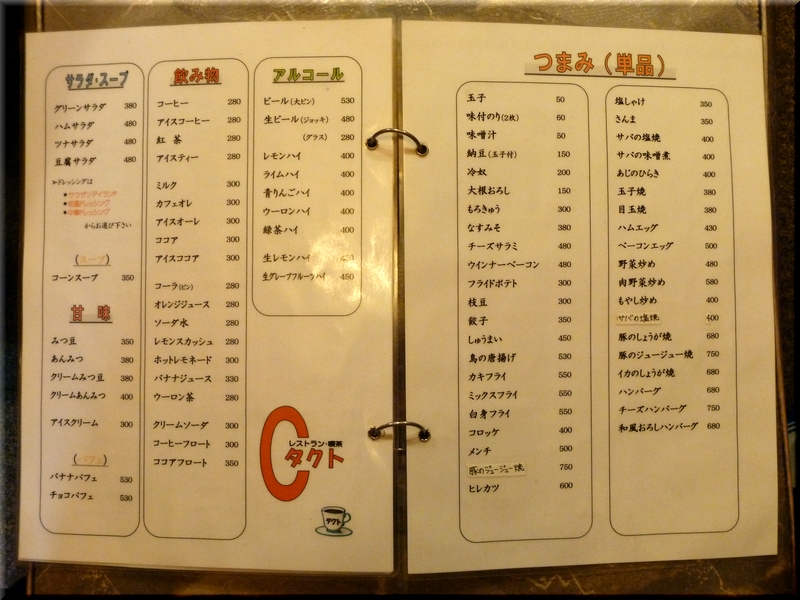 サラダ・スープ
グリーンサラダ 380
ハムサラダ 480
ツナサラダ 480
豆腐サラダ 480
≫ドレッシングは
●サウザンアイランド
●和風ドレッシング
●中華ドレッシング
からお選び下さい
(スープ)
コーンスープ 350
甘味
みつ豆 350
あんみつ 380
クリームみつ豆 380
クリームあんみつ 400
アイスクリーム 300
(パフェ)
バナナパフェ 530
チョコパフェ 530
飲み物
コーヒー 280
アイスコーヒー 280
紅茶 280
アイスティー 280
ミルク 300
カフェオレ 300
アイスオーレ 300
ココア 300
アイスココア 300
コーラ(ビン) 280
オレンジジュース 280
ソーダ水 280
レモンスカッシュ 280
ホットレモネード 280
バナナジュース 330
ウーロン茶 280
クリームソーダ 300
コーヒーフロート 300
ココアフロート 350
アルコール
ビール(大ビン) 530
生ビール(ジョッキ) 480
(グラス) 280
レモンハイ 400
ライムハイ 400
青りんごハイ 400
ウーロンハイ 400
緑茶ハイ 400
生レモンハイ 450
生グレープフルーツハイ 450
レストラン・喫茶
タクト
タクト
つまみ(単品)
玉子 50
味付のり(2枚) 60
味噌汁 50
納豆(玉子付) 150
冷奴 200
大根おろし 150
もろきゅう 300
なすみそ 380
チーズサラミ 480
ウインナーベーコン 480
フライドポテト 300
枝豆 300
餃子 350
しゅうまい 450
鳥の唐揚げ 530
カキフライ 550
ミックスフライ 550
白身フライ 550
コロッケ 400
メンチ 500
豚のジュージュー焼 750
ヒレカツ 600
塩しゃけ 350
さんま 350
サバの塩焼 400
サバの味噌煮 400
あじのひらき 400
玉子焼 380
目玉焼 380
ハムエッグ 430
ベーコンエッグ 500
野菜炒め 480
肉野菜炒め 580
もやし炒め 400
サバの塩焼 400
豚のしょうが焼 680
豚のジュージュー焼 750
イカのしょうが焼 680
ハンバーグ 680
チーズハンバーグ 750
和風おろしハンバーグ 680